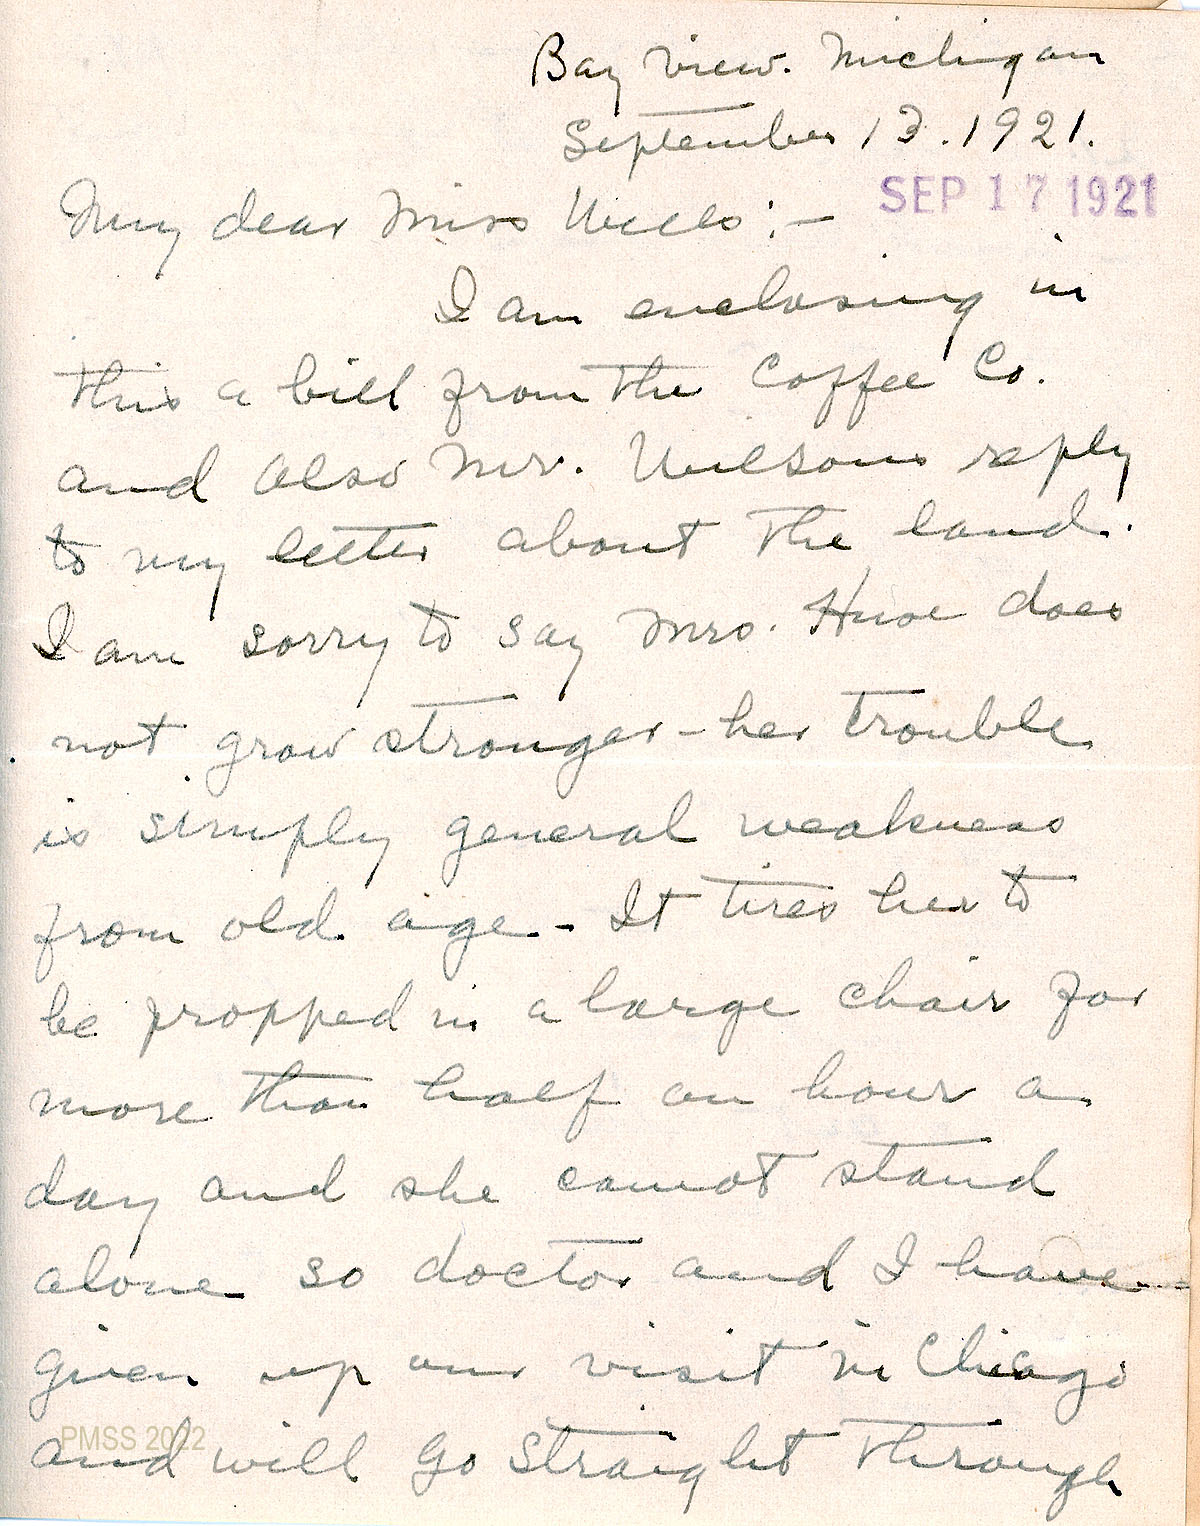 Bay View. Michigan
September 13. 1921.
SEP 17 1921
My dear Miss Wells:—
I am enclosing in
this a bill from the Coffee Co.
and also Mr. Wilsons reply
to my letter about the land.
I am sorry to say Mrs. does
not grow stronger - her trouble
is simply general weakness
from old age - It tires her to
be propped in a large chair for
more than half an hour a
day and she cannot stand
alone so doctor and I have
given up our visit in Chicago
PMSS 2022
and will go straight through